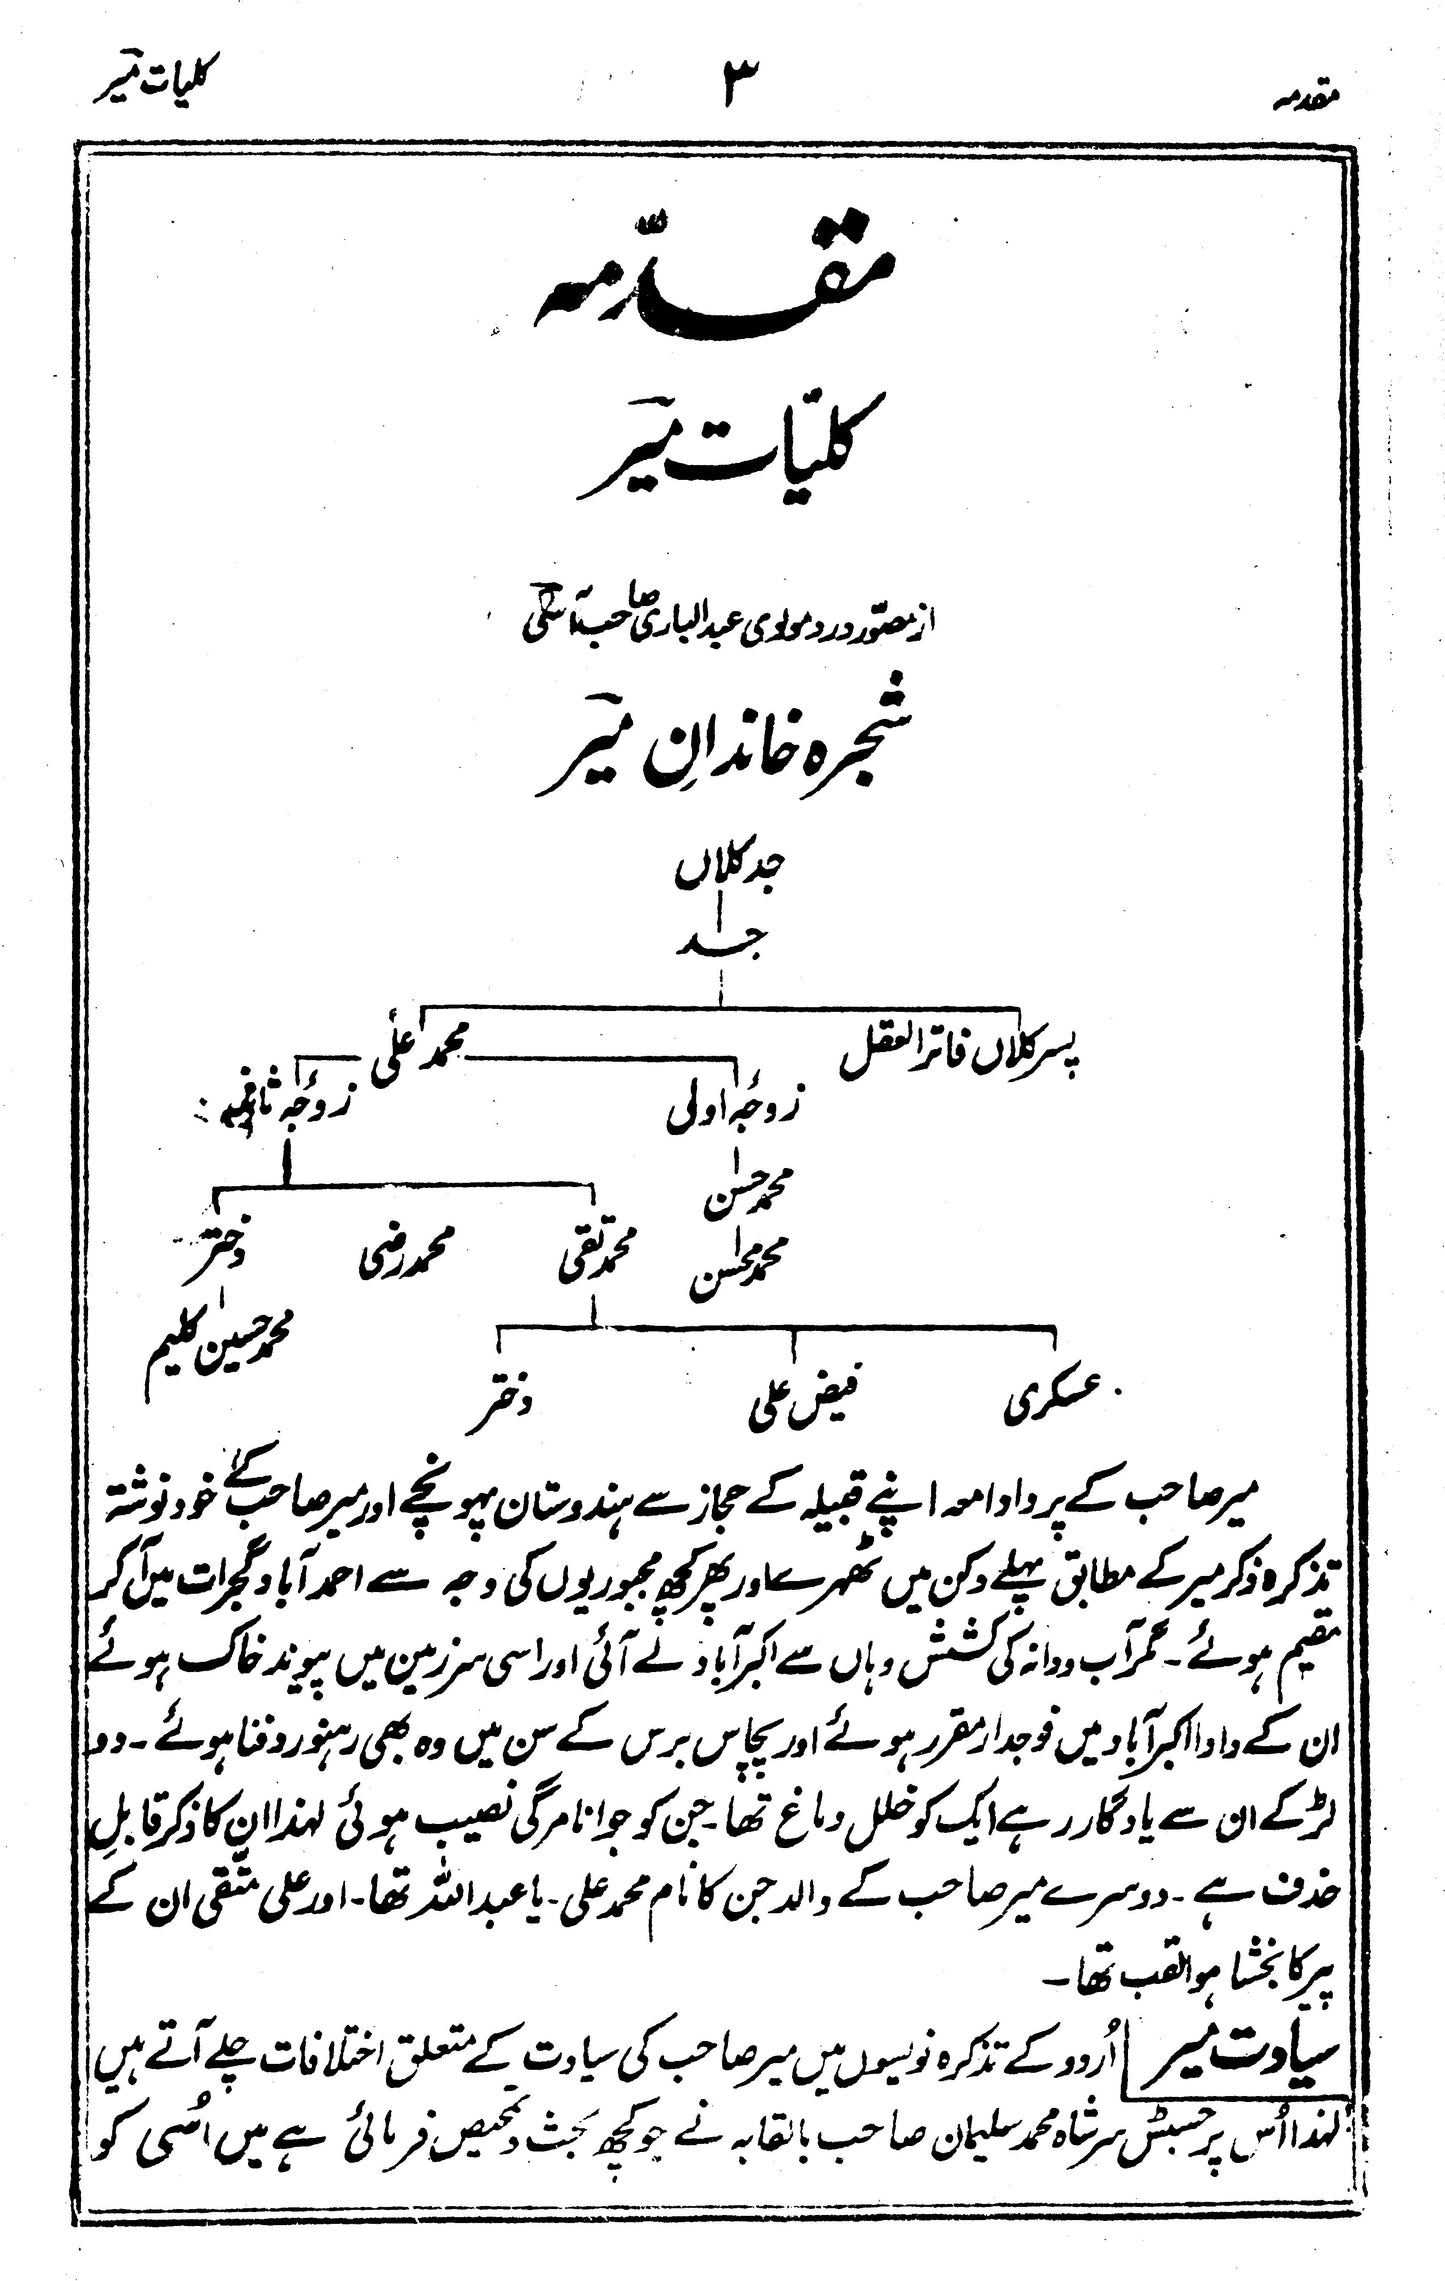 مقدمہ
۳
کلیات میرؔ
مقدّمہ
کلیّات میرؔ
از مصوّر درد مولوی عبد الباری صاحب آسیؔ
شجرہ خاندانِ میرؔ
جد کلاں
جد
پسر کلاں فاتر العقل
محمد علی
زوجۂ اولی
زوجۂ ثانیہ
محمد حسن
محمد محسن
محمد تقی
محمد رضی
دختر
محمد حسین کلیم
عسکری
فیض علی
دختر
میر صاحب کے پردادا معہ اپنے قبیلہ کے حجاز سے ہندوستان پہونچے اور میر صاحب کے خود نوشتہ
تذکرہ ذکر میر کے مطابق پہلے دکن میں ٹھہرے اور پھر کچھ مجبوریوں کی وجہ سے احمد آباد گجرات میں آکر
مقیم ہوئے۔ مگر آب و دانہ کی کشش وہاں سے اکبرآباد لے آئی اور اسی سرزمین میں پیوند خاک ہوئے
ان کے دادا اکبرآباد میں فوجدار مقرر ہوئے اور پچاس برس کے سن میں وہ بھی رہنورد فنا ہوئے۔ دو
لڑکے ان سے یادگار رہے ایک کو خلل دماغ تھا۔ جن کو جوانا مرگی نصیب ہوئی لہذا ان کا ذکر قابلِ
حذف ہے۔ دوسرے میر صاحب کے والد جن کا نام محمد علی۔ یا عبد اللہ تھا۔ اور علی متّقی ان کے
پیر کا بخشا ہوا لقب تھا۔
سیادت میر
اُردو کے تذکرہ نویسوں میں میر صاحب کی سیادت کے متعلق اختلافات چلے آتے ہیں
لہذا اُس پر جسٹس سر شاہ محمد سلیمان صاحب بالقابہ نے جو کچھ بحث و تمحیص فرمائی ہے میں اُسی کو